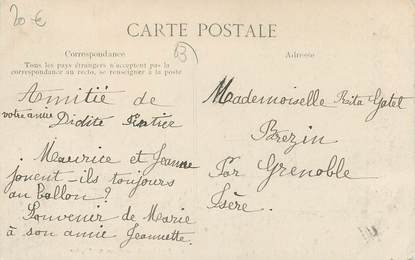 20 €
CARTE POSTALE
B
Correspondance
Tous les pays étrangers n'acceptent pas la
correspondance au recto, se renseigner à la poste
Adresse
Amitié de
votre amie
Maurice et Jeanne
jouent-ils toujours
au ballon ?
Souvenir de Marie
à son amie Jeannette.
Mademoiselle Rita
Brezin
Par Grenoble
Isère.